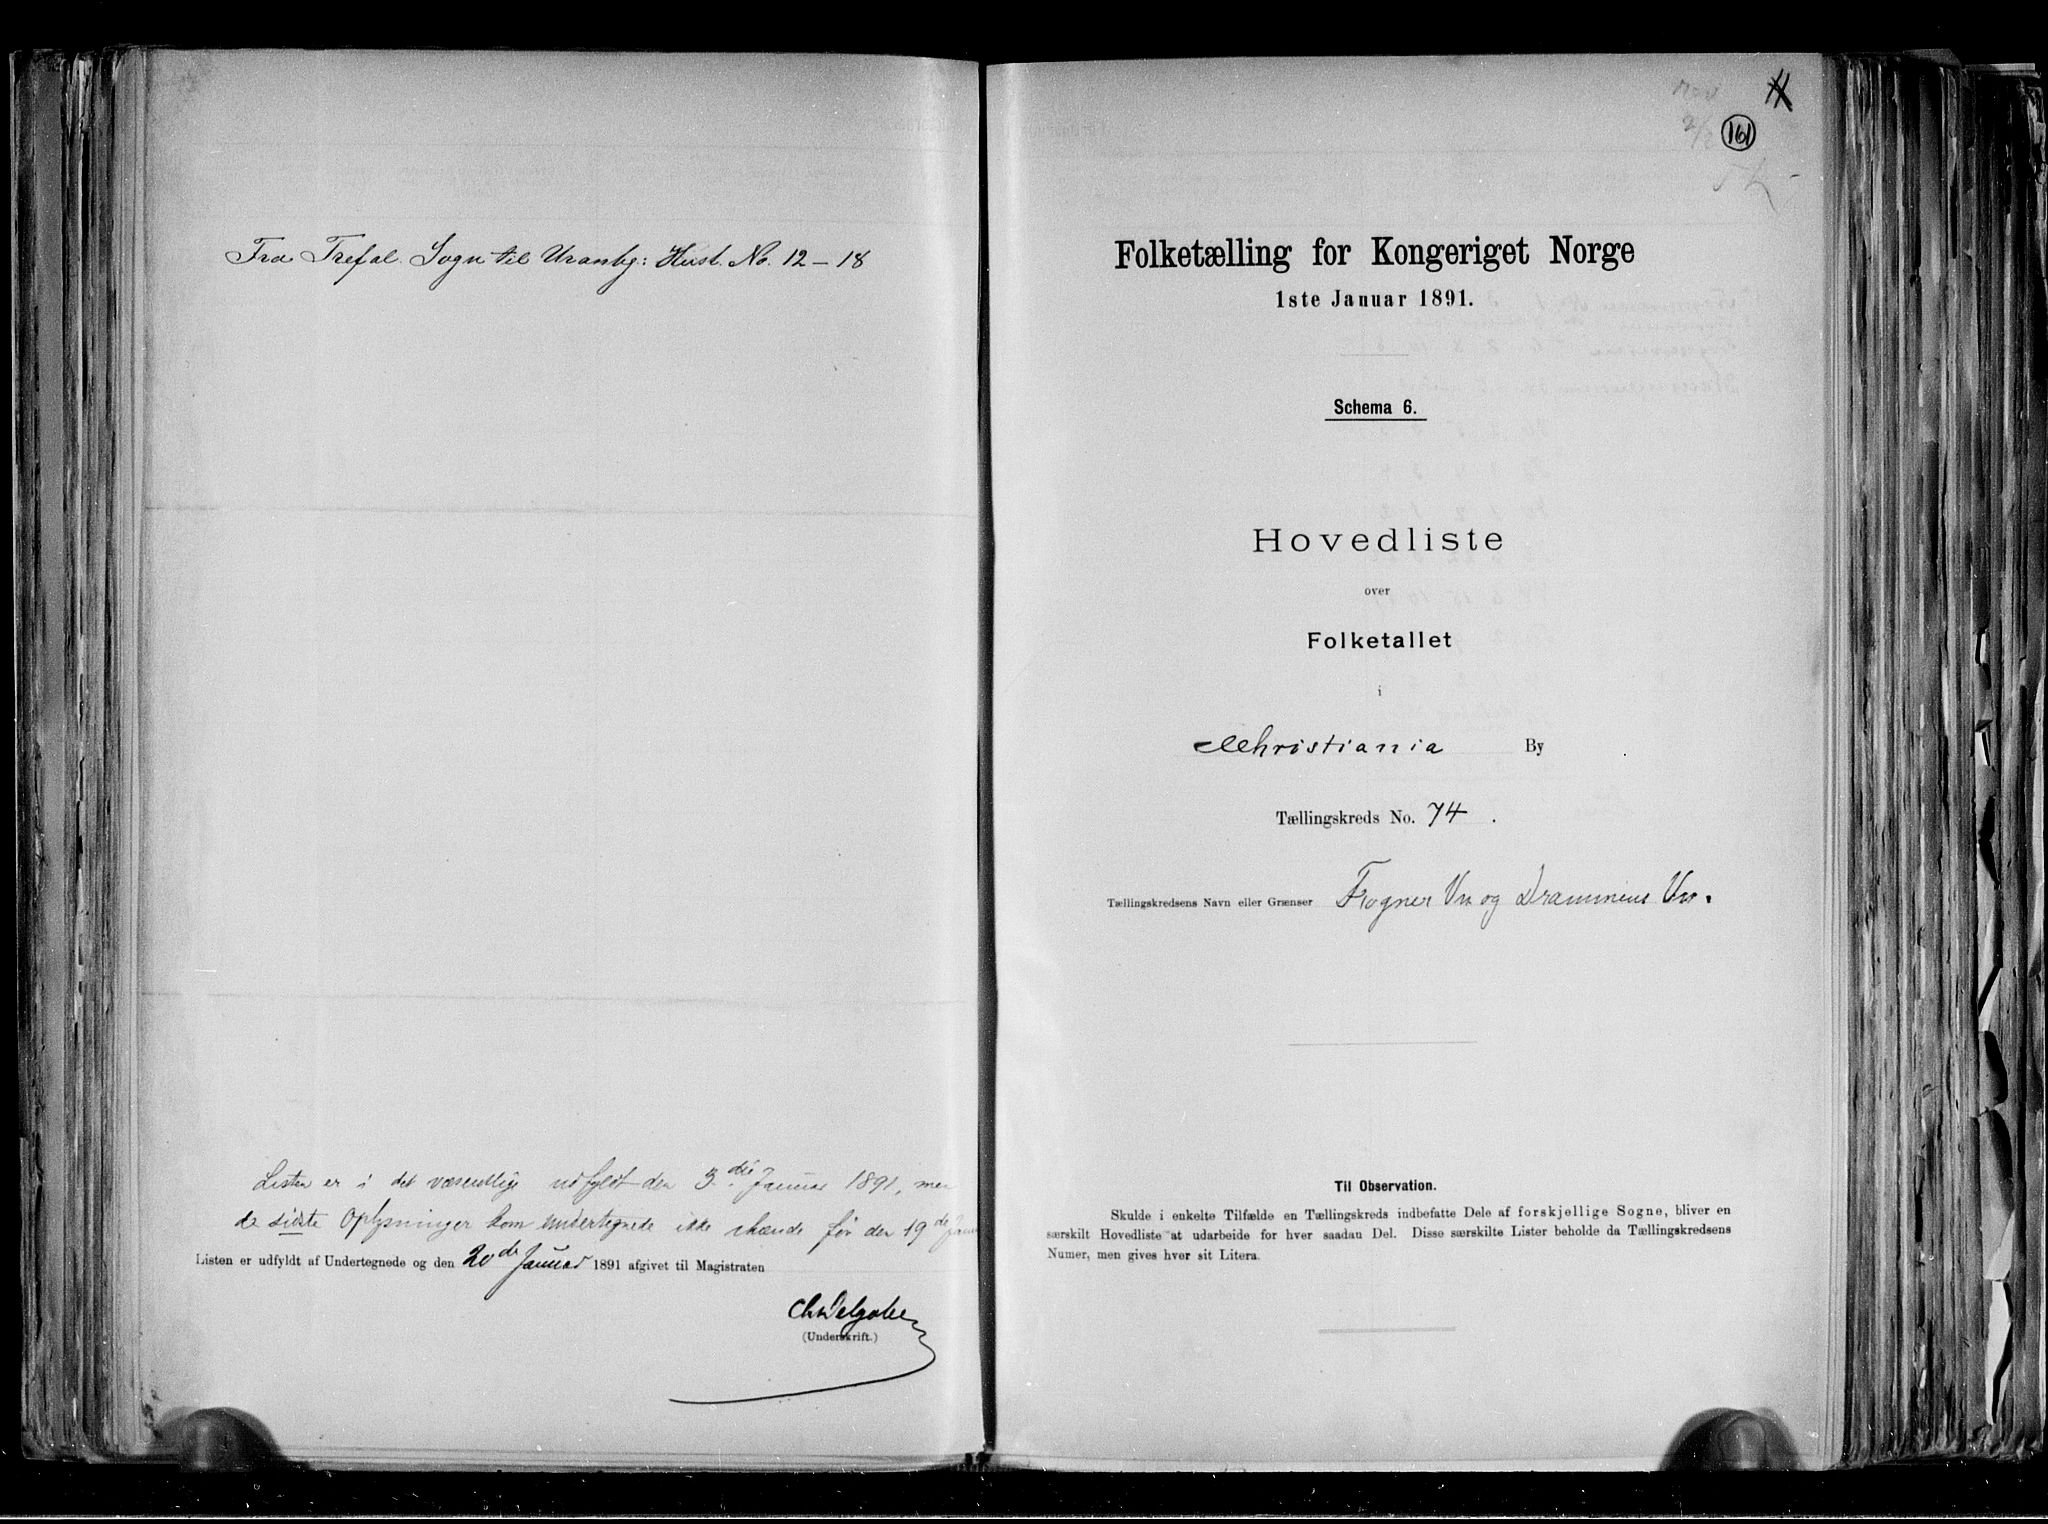 Fra Trefol. Sogn til Uranbg: Hust. No. 12 – 18
Listen er i det væsentlige udfyldt den 3die Januar 1891, men
de sidste Oplysninger kom undertegnede ikke ihænde før den 19de Janu
Listen er udfyldt af Undertegnede og den 20de Januar 1891 afgivet til Magistraten
(Underskrift.)
161
Folketælling for Kongeriget Norge
1ste Januar 1891.
Schema 6.
Hovedliste
over
Folketallet
i
Christiania By
Tællingskreds No. 74.
Tællingskredsens Navn eller Grænser Frogner Vn og Drammens Vn.
Til Observation.
Skulde i enkelte Tilfælde en Tællingskreds indbefatte Dele af forskjellige Sogne, bliver en
særskilt Hovedliste at udarbeide for hver saadan Del. Disse særskilte Lister beholde da Tællingskredsens
Numer, men gives hver sit Litera.